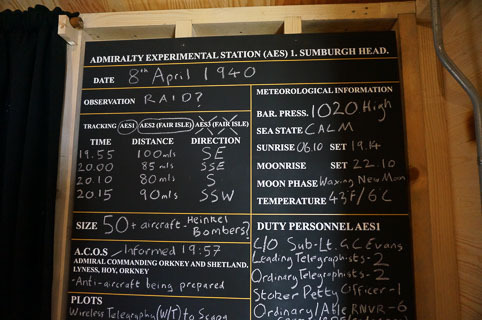 ADMIRALTY EXPERIMENTAL STATION (AES) 1. SUMBURGH HEAD.
DATE 8th April 1940
OBSERVATION RAID?
TRACKING AES1 AES2 (FAIR ISLE) AES3 (FAIR ISLE)
TIME DISTANCE DIRECTION
19.55 100mls SE
20.00 85 mls SSE
20.10 80 mls S
20.15 90 mls SSW
SIZE 50+ aircraft - Heinkel
Bombers?
A.C.O.S Informed 19:57
ADMIRAL COMMANDING ORKNEY AND SHETLAND.
LYNESS, HOY, ORKNEY
- Anti-aircraft being prepared
PLOTS
Wireless Telegraphy (W/T) to Scapa
METEOROLOGICAL INFORMATION
BAR. PRESS. 1020 High
SEA STATE CALM
SUNRISE 06.10 SET 19.14
MOONRISE SET 22.10
MOON PHASE Waxing New Moon
TEMPERATURE 43°F/6°C
DUTY PERSONNEL AES1
C/O Sub-Lt. G.C Evans
Leading Telegraphists - 2
Ordinary Telegraphists - 2
Stoker Petty Officer - 1
Ordinary/Able RNVR - 6